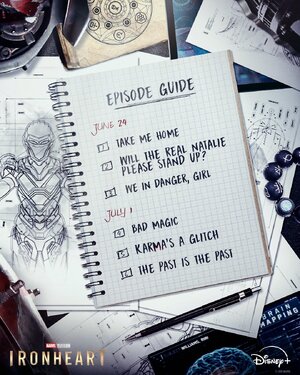 EPISODE GUIDE
JUNE 24
1 TAKE ME HOME
2 WILL THE REAL NATALIE
PLEASE STAND UP?
3 WE IN DANGER, GIRL
JULY 1
4 BAD MAGIC
5 KARMA'S A GLITCH
6 THE PAST IS THE PAST
WILLIAMS, RIRI
BRAIN
MAPPING
MARVEL TELEVISION
IRONHEART
Disney+